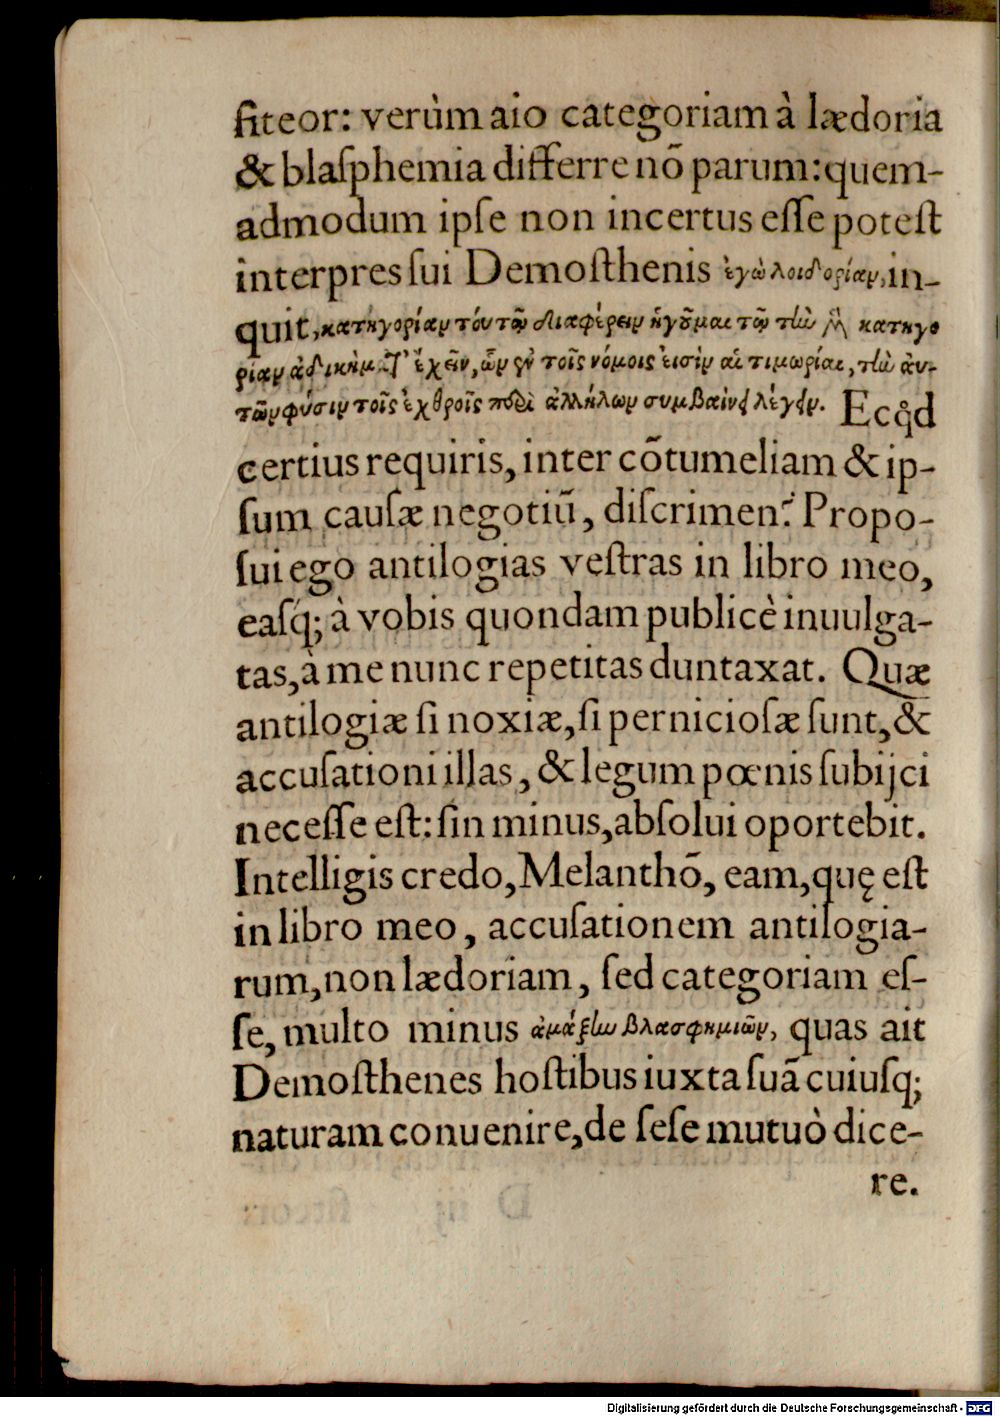 fiteor: verùm aio categoriam à lædoria
& blaſphemia differre nõ parum: quem-
admodum ipſe non incertus eſſe poteſt
interpres ſui Demoſthenis ἐγὼ λοιδορίαν, in-
quit, κατηγορίαν τούτῳ διαφέρειν ἡγοῦμαι τῷ τὴν μὲν κατηγο
ρίαν ἀδικήματ' ἔχειν, ὧν ἐν τοῖς νόμοις εἰσὶν αἱ τιμωρίαι, τὴν ἀυ-
τῶν φύσιν τοῖς ἐχθροῖς περὶ ἀλλήλων συμβαίνει λέγειν. Ecqd
certius requiris, inter cõtumeliam & ip-
ſum cauſæ negotiũ, diſcrimen? Propo-
ſui ego antilogias veſtras in libro meo,
eaſq́; à vobis quondam publicè inuulga-
tas, à me nunc repetitas duntaxat. Quæ
antilogiæ ſi noxiæ, ſi pernicioſæ ſunt, &
accuſationi illas, & legum pœnis ſubijci
neceſſe eſt: ſin minus, abſolui oportebit.
Intelligis credo, Melanthõ, eam, quę eſt
in libro meo, accuſationem antilogia-
rum, non lædoriam, ſed categoriam eſ-
ſe, multo minus ἁμάξην βλασφημιῶν, quas ait
Demoſthenes hoſtibus iuxta ſuã cuiuſq;
naturam conuenire, de ſeſe mutuò dice-
re.
Digitalisierung gefördert durch die Deutsche Forschungsgemeinschaft - DFG